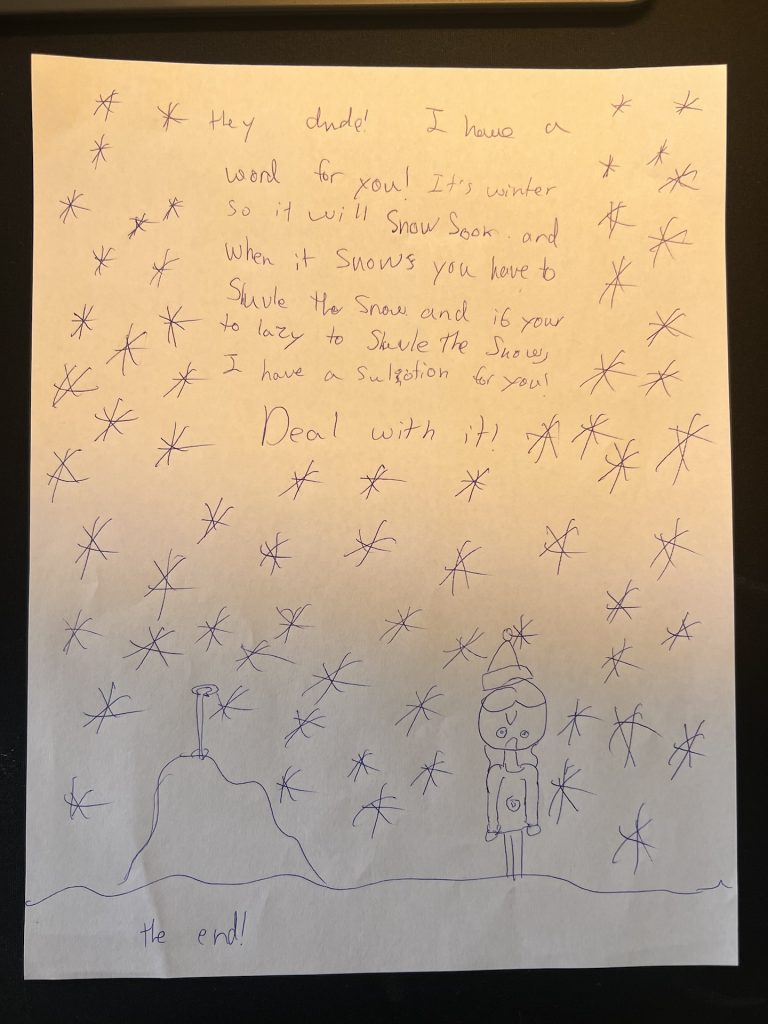 Hey dude! I have a
word for you! It's winter
so it will Snow Soon. and
when it Snows you have to
Shuvle the Snow and if your
to lazy to Shuvle the Snow,
I have a Sulqotion for you!
Deal with it!
the end!